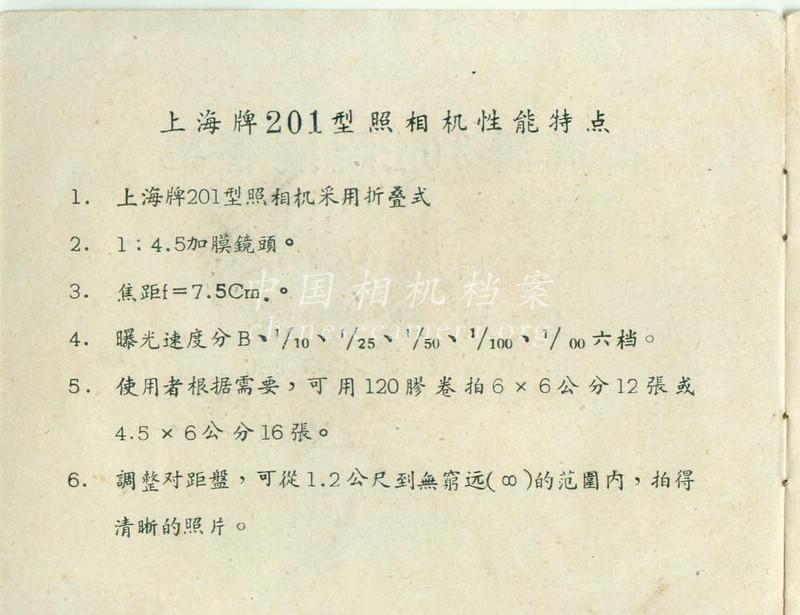 上海牌201型照相机性能特点
1. 上海牌201型照相机采用折叠式
2. 1:4.5加膜鏡頭。
中国相机档案
3. 焦距f=7.5Cm.。
chinesecamera.org
4. 曝光速度分B、1/10、1/25、1/50、1/100、1/ 00六档。
5. 使用者根据需要，可用120膠卷拍6×6公分12張或
4.5×6公分16張。
6. 調整对距盤，可從1.2公尺到無窮远(∞)的范圍内，拍得
清晰的照片。